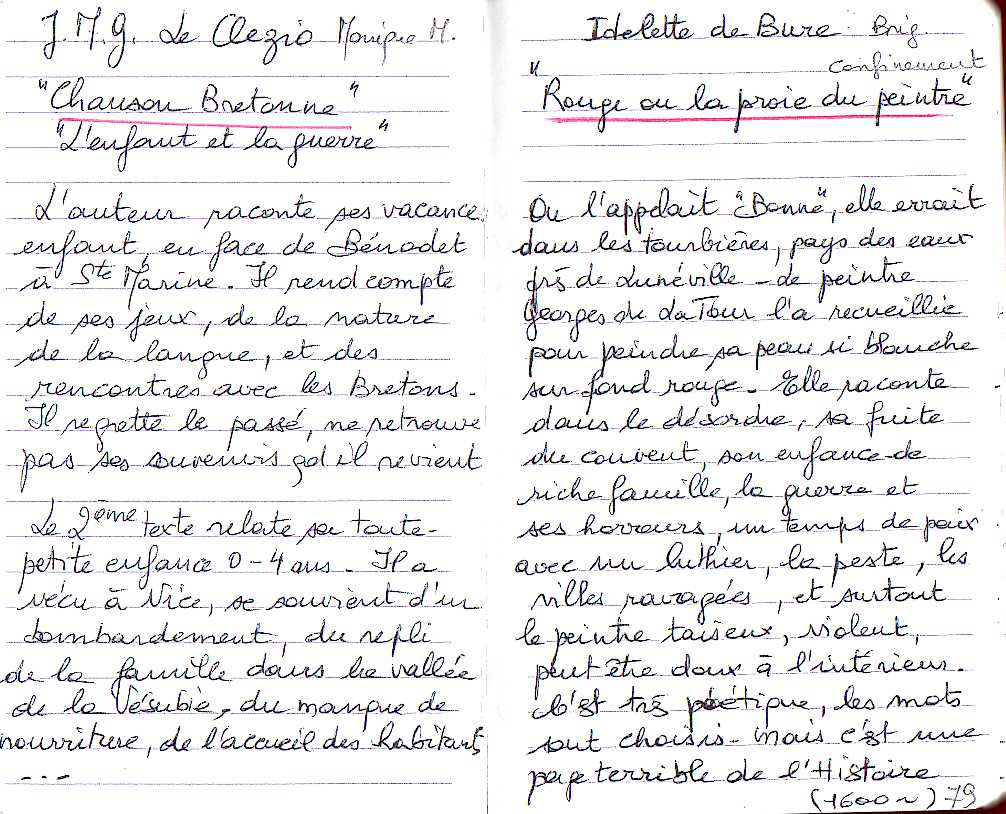 J.M.G. Le Clezio Monique M.
"Chanson Bretonne"
"L'enfant et la guerre"
L'auteur raconte ses vacance
enfant, en face de Bénodet
à Ste Marine. Il rend compte
de ses jeux, de la nature
de la langue, et des
rencontres avec les Bretons.
Il regrette le passé, ne retrouve
pas ses souvenirs qd il revient
Le 2ème texte relate sa toute-
petite enfance 0-4 ans. Il a
vécu à Nice, se souvient d'un
bombardement, du repli
de la famille dans la vallée
de la Vésubie, du manque de
nourriture, de l'accueil des habitants
...
Idelette de Bure Brig.
confinement
"Rouge ou la proie du peintre"
On l'appelait "Bonne", elle errait
dans les tourbières, pays des eaux
près de Lunéville - Le peintre
Georges de La Tour l'a recueillie
pour peindre sa peau si blanche
sur fond rouge. Elle raconte
dans le désordre, sa fuite
du couvent, son enfance de
riche famille, la guerre et
ses horreurs, un temps de paix
avec un luthier, la peste, les
villes ravagées, et surtout
le peintre taiseux, violent,
peut être doux à l'intérieur.
C'est très poétique, les mots
sont choisis - mais c'est une
page terrible de l'Histoire
(1600~) 79